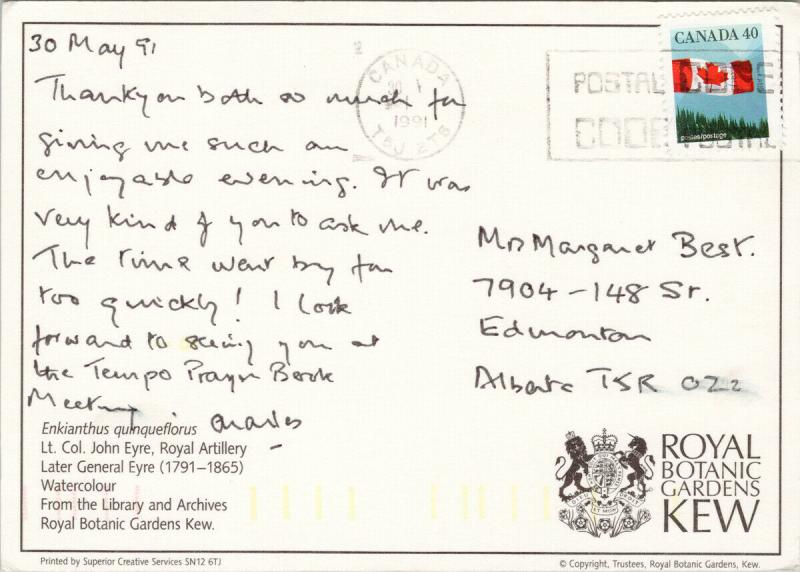 30 May 91
Thankyou both so much for
giving me such an
enjoyable evening. It was
very kind of you to ask me.
The time went by far
too quickly! I look
forward to seeing you at
the Tempo Prayer Book
Meeting. Charles
CANADA
1991
T5J 2T8
POSTAL CODE
CODE POSTAL
CANADA 40
postes/postage
Mrs Margaret Best.
7904 - 148 St.
Edmonton
Alberta T5R 0Z2
Enkianthus quinqueflorus
Lt. Col. John Eyre, Royal Artillery
Later General Eyre (1791–1865)
Watercolour
From the Library and Archives
Royal Botanic Gardens Kew.
ROYAL
BOTANIC
GARDENS
KEW
Printed by Superior Creative Services SN12 6TJ
© Copyright, Trustees, Royal Botanic Gardens, Kew.